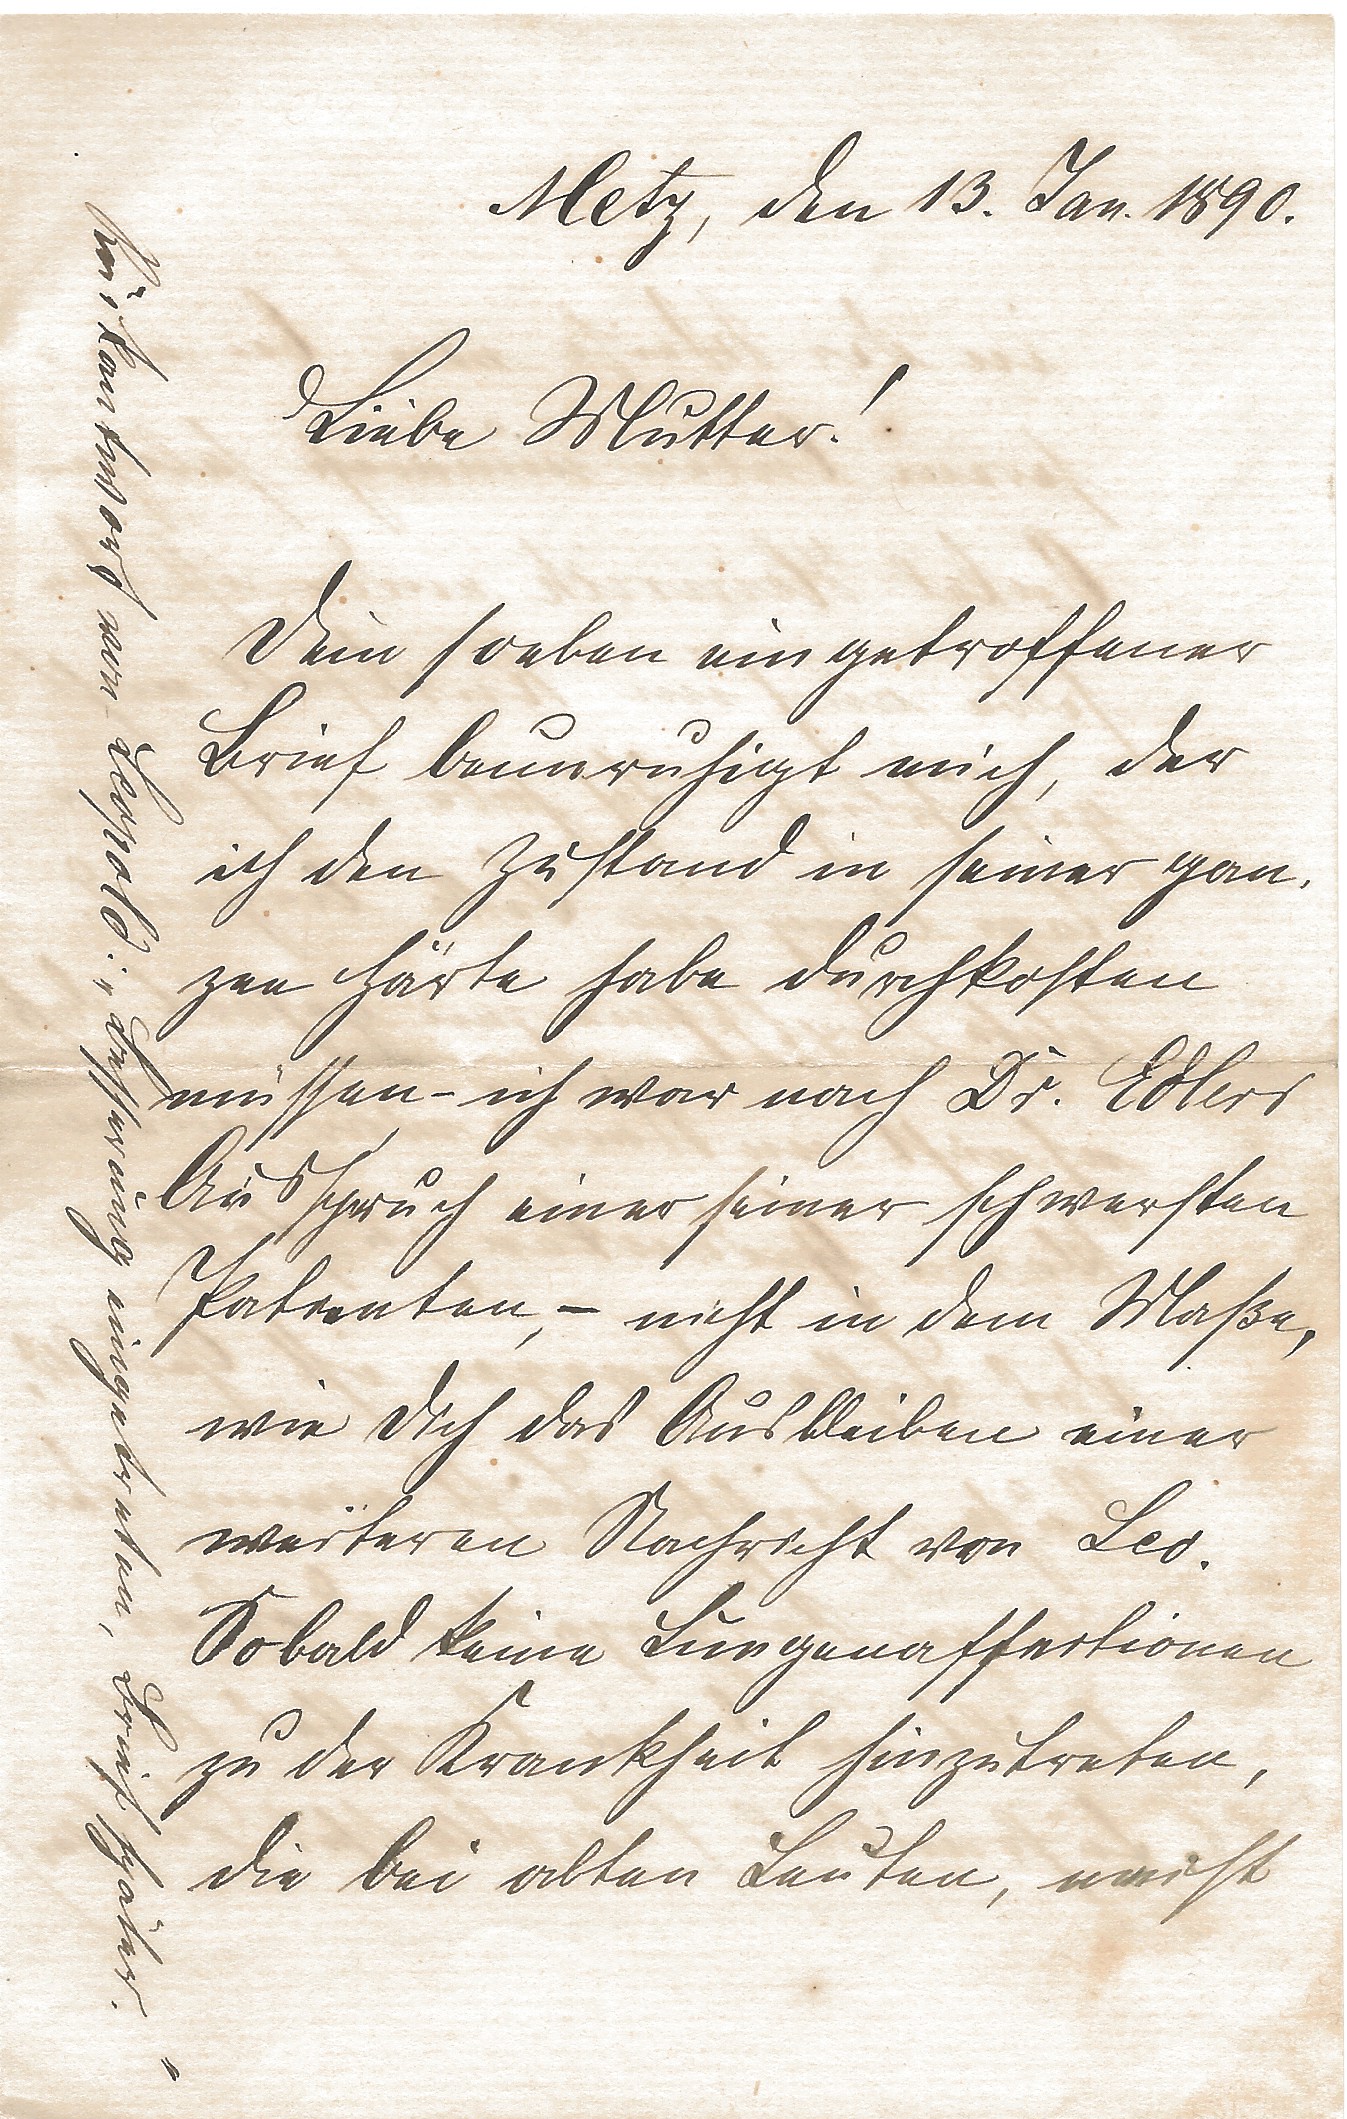 Metz, den 13. Jan. 1890.
Liebe Mutter!
Dein soeben eingetroffener
Brief beunruhigt mich, der
ich den Zustand in seiner gan-
zen Härte habe durchkosten
müssen - ich war nach Dr. Edlers
Ausspruch einer seiner schwersten
Patienten, - nicht in dem Maße,
wie Dich das Ausbleiben einer
weiteren Nachricht von Leo.
Sobald keine Lungenaffectionen
zu der Krankheit hinzutreten,
die bei alten Leuten, meist
Rückantwort von Leopold: „Besserung eingetreten, Brief später."